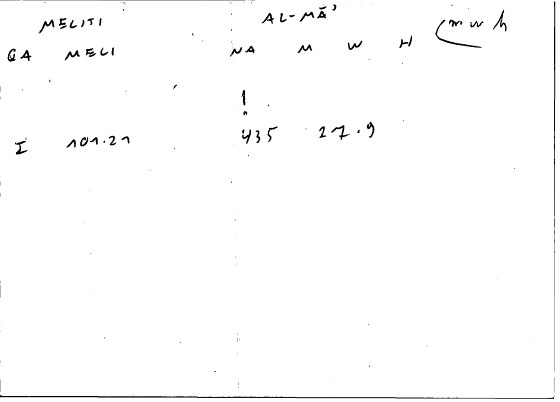 MELITI AL-MĀʾ
GA MELI NA M W H (m w h
!
I 101.21 435 27.9